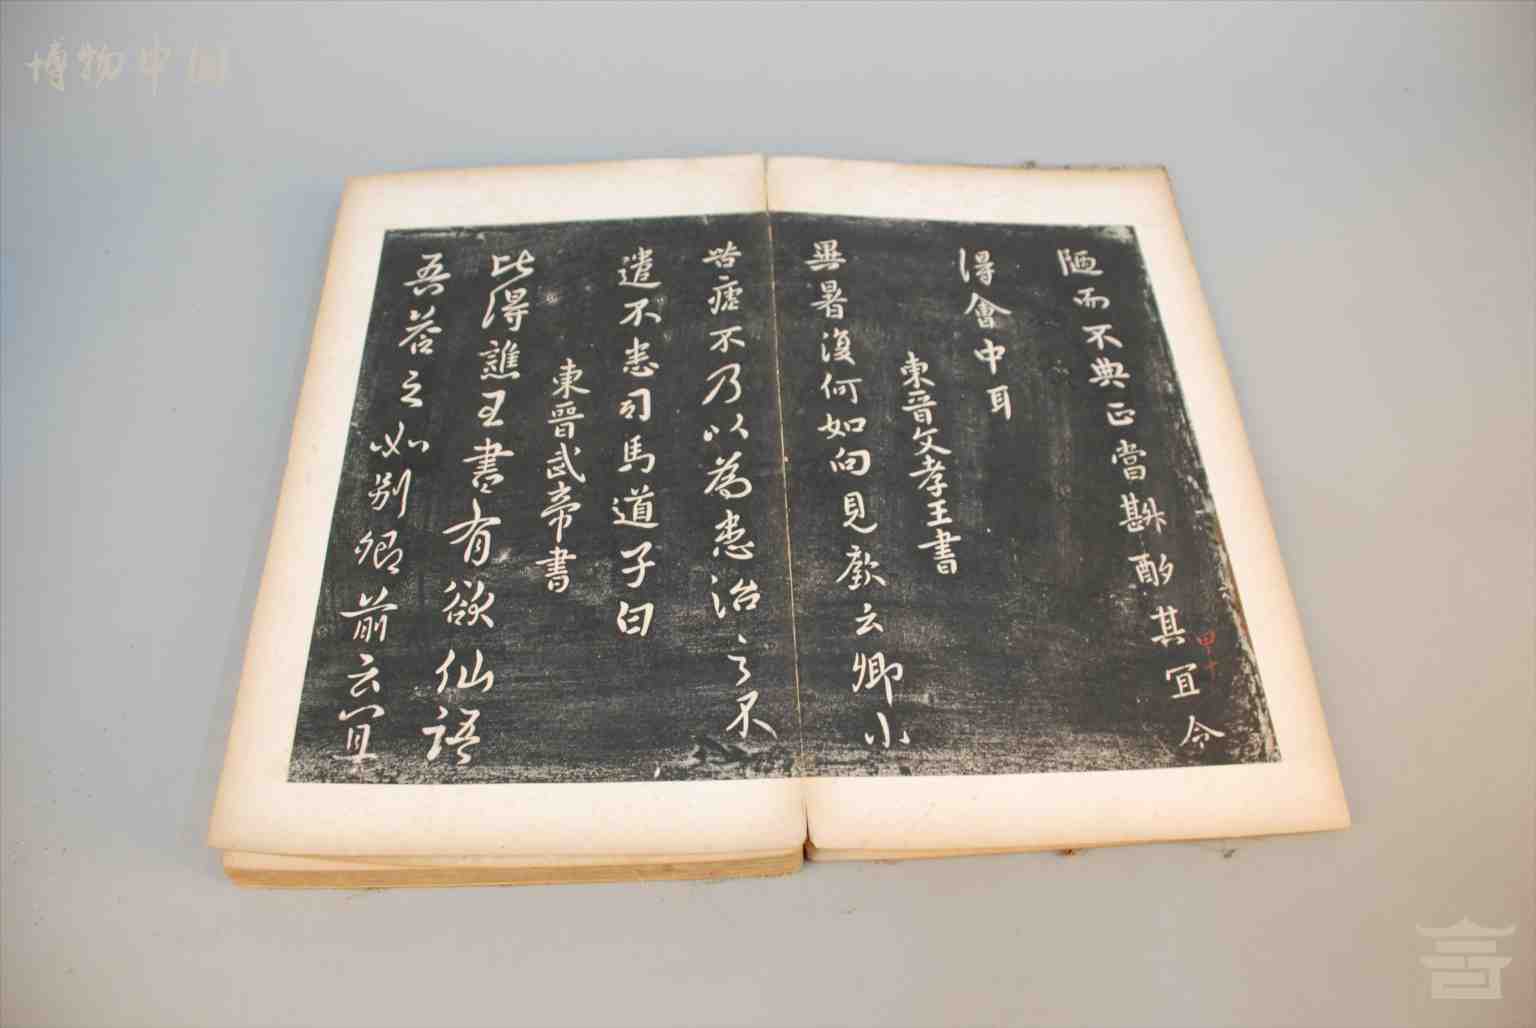 陋而不典正當斟酌其宜令
得會中耳
東晉文孝王書
異暑復何如向見歡云卿小
皆瘧不乃以為患治之不
遣不恙司馬道子白
東晉武帝書
比得譙王書有欲仙語
吾答之如別卿前云宜
甲十
博物中国